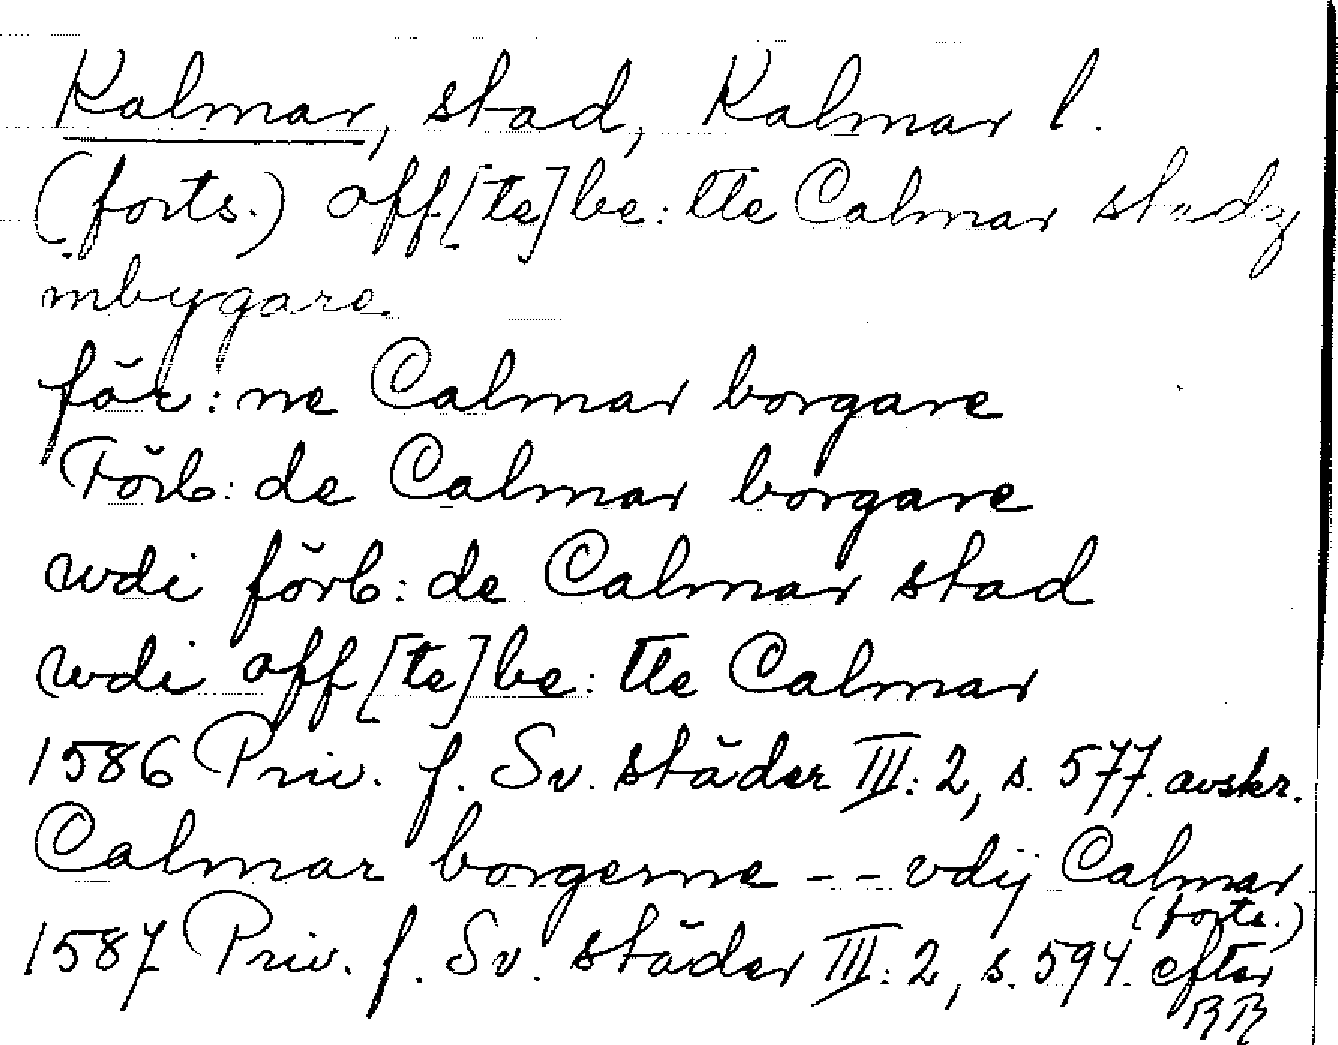 Kalmar, stad, Kalmar l.
(forts.) off[te]be:tte Calmar stadz
inbygare.
för:ne Calmar borgare
Förb:de Calmar borgare
wdi förb:de Calmar stad
wdi off[te]be:tte Calmar
1586 Priv. f. Sv. städer III:2, s. 577. avskr.
Calmar borgerne -- vdij Calmar
(forts.)
1587 Priv. f. Sv. städer III:2, s. 594. efter
RR